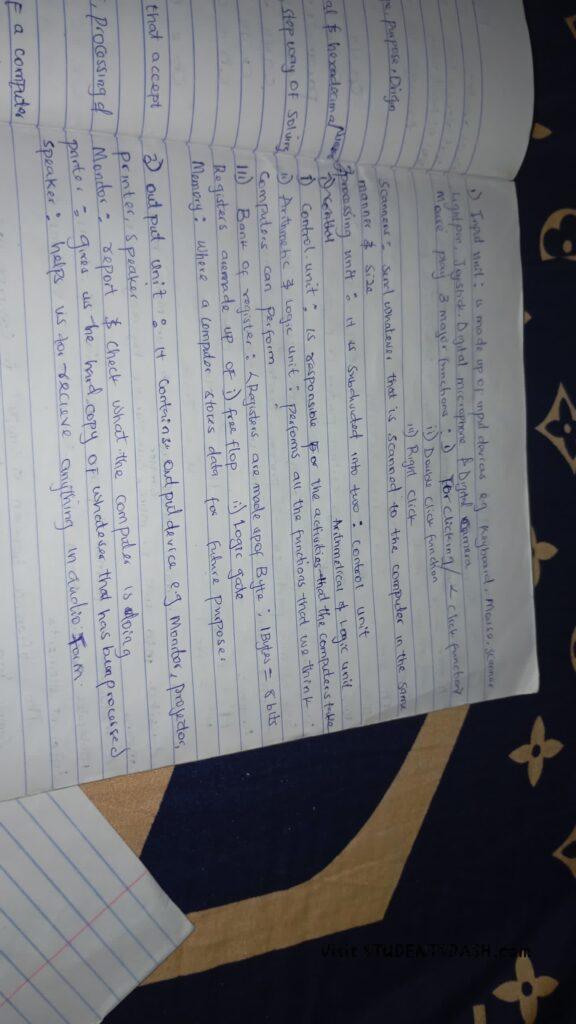 pe, purpose, Design
al & hexadecimal Number
step way of solving
that accept
, processing &
f a computer
i) Input unit: is made up of input devices e.g Keyboard, Mouse, scanner
Lightpin, Joystick, Digital microphone & Digital Camera.
Mouse play 3 major functions: i) For clicking / L click function
ii) Double click function
iii) Right click
Scanners = Send whatever that is scanned to the computer in the same
manner & size
Processing unit: it is subdivided into two: control unit
Arithmetical & Logic unit
i) Control unit: is responsible for the activities that the computers take
ii) Arithmetic & Logic unit: performs all the functions that we think
Computers can perform
III) Bank of register: <Registers are made up of Byte: 1Bytes = 8 bits
Registers are made up of i) free flop ii) Logic gate
Memory: Where a computer stores data for future purpose.
3) Output unit: it contains output device e.g Monitor, projector,
printer, speaker
Monitor = report & check what the computer is doing
printer = gives us the hard copy of whatever that has been processed
speaker: helps us for recieve anything in audio form.
Visit STUDENTSDASH.com